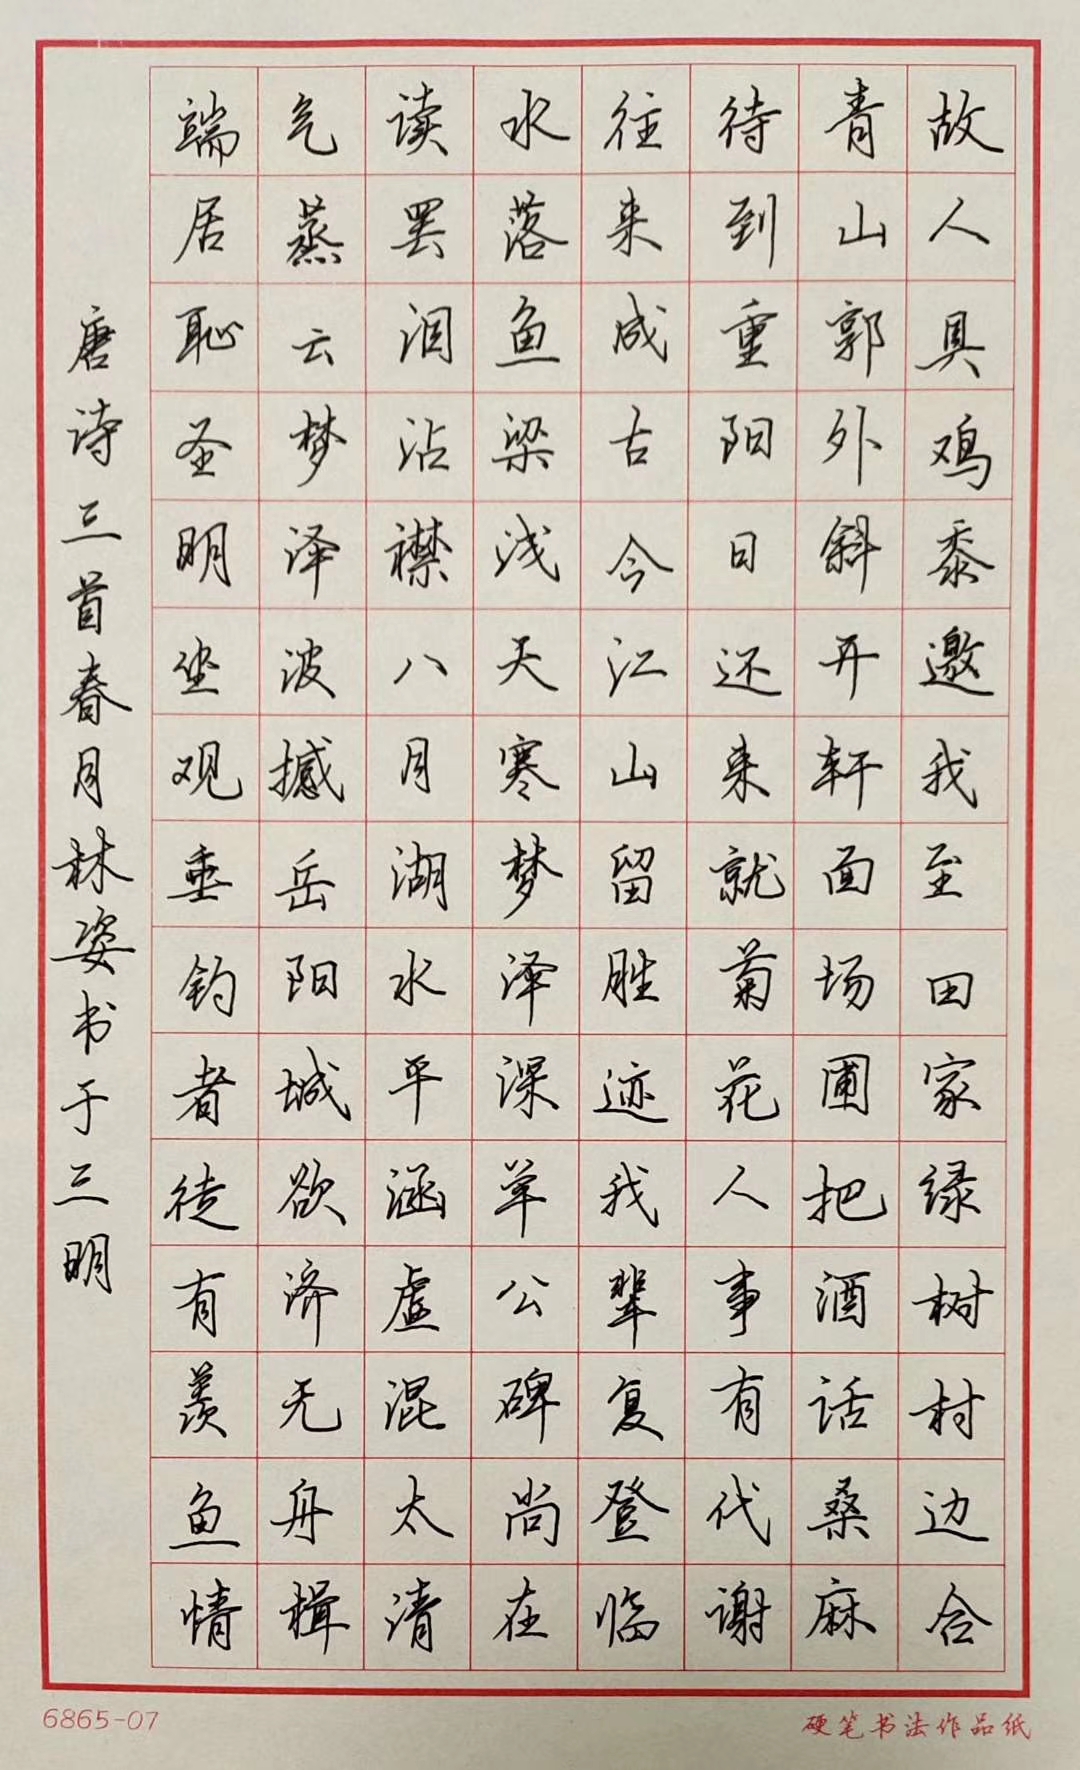 故人具鸡黍邀我至田家绿树村边合
青山郭外斜开轩面场圃把酒话桑麻
待到重阳日还来就菊花人事有代谢
往来成古今江山留胜迹我辈复登临
水落鱼梁浅天寒梦泽深羊公碑尚在
读罢泪沾襟八月湖水平涵虚混太清
气蒸云梦泽波撼岳阳城欲济无舟楫
端居耻圣明坐观垂钓者徒有羡鱼情
唐诗三首春月林姿书于三明
6865-07
硬笔书法作品纸